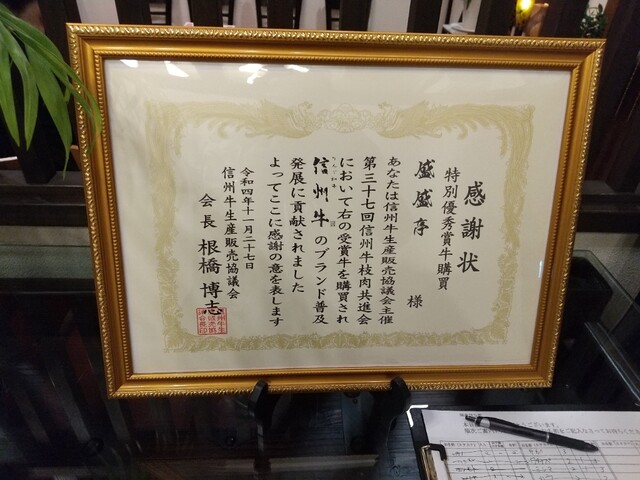 感謝状
特別優秀賞牛購買
盛盛亭 様
あなたは信州牛生産販売協議会主催
第三十七回信州牛枝肉共進会
において右の受賞牛を購買され
信州牛のブランド普及
発展に貢献されました
よってここに感謝の意を表します
令和四年十一月二十七日
信州牛生産販売協議会
会長 根橋博志